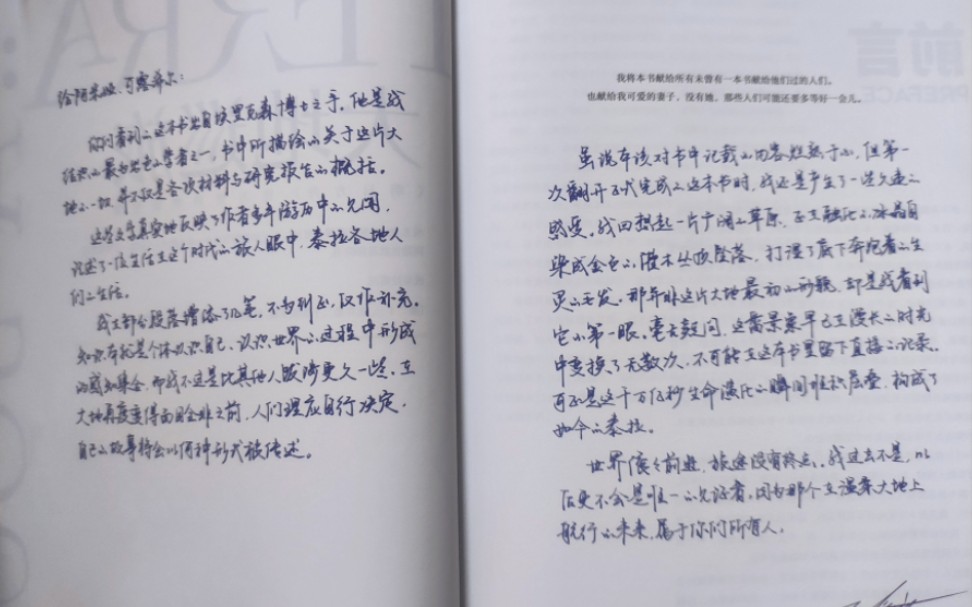 给阿米娅、可露希尔:
你们看到的这本书出自埃里克森博士之手。他是我
结识的最为出色的学者之一,书中所描绘的关于这片大
地的一切,并不仅是各项材料与研究报告的概括。
这些文字真实地反映了作者多年游历中的见闻,
记述了一位生活在这个时代的旅人眼中,泰拉各地人
们的生活。
我在部分段落增添了几笔,不为纠正,仅作补充。
知识本就是个体认识自己、认识世界的过程中形成
的感知集合,而我不过是比其他人跋涉更久一些。在
大地再度变得面目全非之前,人们理应自行决定,
自己的故事将会以何种形式被传述。
前言
PREFACE
我将本书献给所有未曾有一本书献给他们过的人们。
也献给我可爱的妻子,没有她,那些人们可能还要多等好一会儿。
虽说本该对书中记载的内容烂熟于心,但第一
次翻开正式完成的这本书时,我还是产生了一些久违的
感受。我回想起一片广阔的草原,正在融化的冰晶自
染成金色的灌木丛顶坠落,打湿了底下奔跑着的生
灵的毛发。那并非这片大地最初的形貌,却是我看到
它的第一眼。毫无疑问,这番景象早已在漫长的时光
中变换了无数次,不可能在这本书里留下直接的记录。
可正是这千万亿秒生命演化的瞬间堆积层叠,构成了
如今的泰拉。
世界质朴前进,旅途没有终点。我过去不是,以
后更不会是唯一的见证者,因为那个在温柔大地上
航行的未来,属于你们所有人。